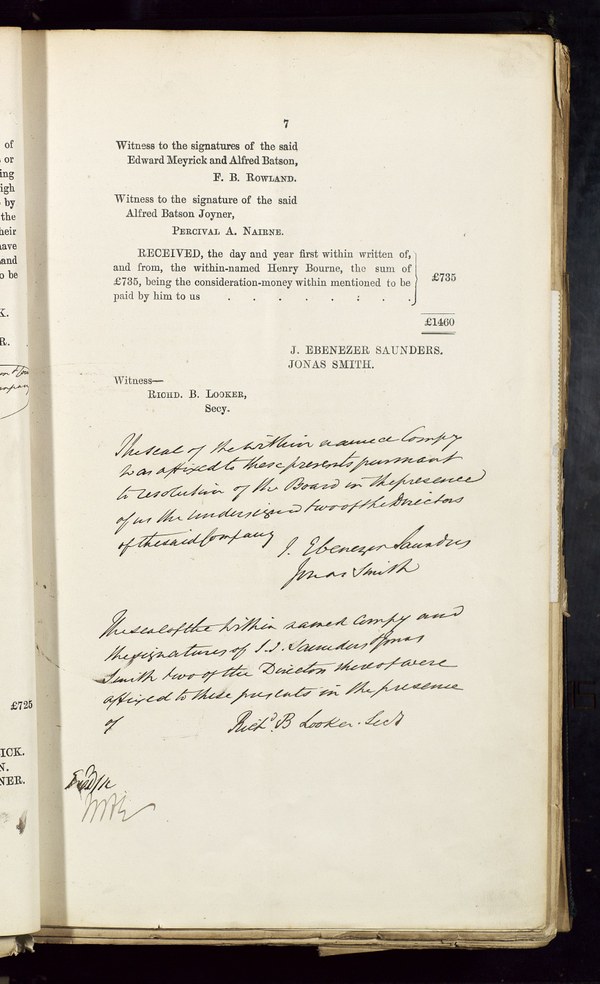 7
Witness to the signatures of the said
Edward Meyrick and Alfred Batson,
F. B. ROWLAND.
Witness to the signature of the said
Alfred Batson Joyner,
PERCIVAL A. NAIRNE.
RECEIVED, the day and year first within written of,
and from, the within-named Henry Bourne, the sum of
£735, being the consideration-money within mentioned to be
paid by him to us . . . . . . .
£735
£1460
J. EBENEZER SAUNDERS.
JONAS SMITH.
Witness—
RICHD. B. LOOKER,
Secy.
The seal of the within named Compy
was affixed to these presents pursuant
to resolution of the Board in the presence
of us the undersigned two of the Directors
of the said Company
J. Ebenezer Saunders
Jonas Smith
The seal of the within named Compy and
the signatures of J. E. Saunders & Jonas
Smith two of the Directors thereof were
affixed to these presents in the presence
of
Richd. B Looker Secy
of
or
ing
igh
by
the
heir
ave
and
o be
K.
R.
£725
ICK.
N.
NER.